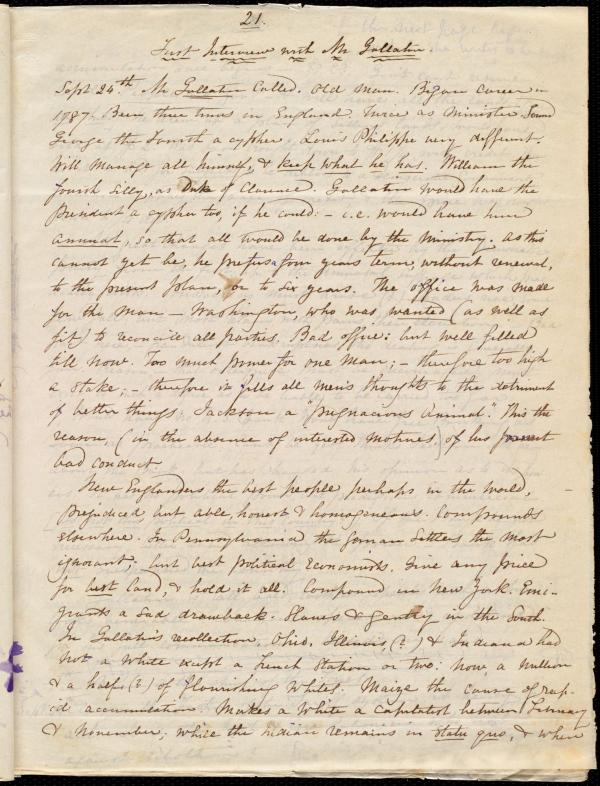 21.
First Interview with Mr Gallatin.
Sept 24th. Mr Gallatin called. Old man. Began career in
1787. Been three times in England. Twice as Minister. Found
George the Fourth a cypher, Louis Philippe very different.
Will manage all himself, & keep what he has. William the
fourth silly, as Duke of Clarence. Gallatin would have the
President a cypher too, if he could: – i.e. would have him
annual, so that all would be done by the ministry. As this
cannot yet be, he prefers a four years term, without renewal,
to the present plan, or to six years. The office was made
for the man – Washington, who was wanted (as well as
fit) to reconcile all parties. Bad office: but well filled
till now. Too much power for one man; – therefore too high
a stake; – therefore it fills all men's thoughts to the detriment
of better things. Jackson a "pugnacious animal." This the
reason, (in the absence of interested motives) of his present
bad conduct.
New Englanders the best people, perhaps in the world,
prejudiced, but able, honest & homogeneous. Compounds
elsewhere. In Pennsylvania the German Settlers the most
ignorant, but best political Economists. Give any price
for best land, & hold it all. Compound in New York. Emi-
grants a sad drawback. Slaves & gentry in the South.
In Gallatin's recollection, Ohio, Illinois (?) & Indiana had
not a White except a French Station or two: now, a million
& a half (?) of flourishing Whites. Maize the cause of rap-
id accumulation. Makes a White a capitalist between February
& November; while the Indian remains in statu quo, & when